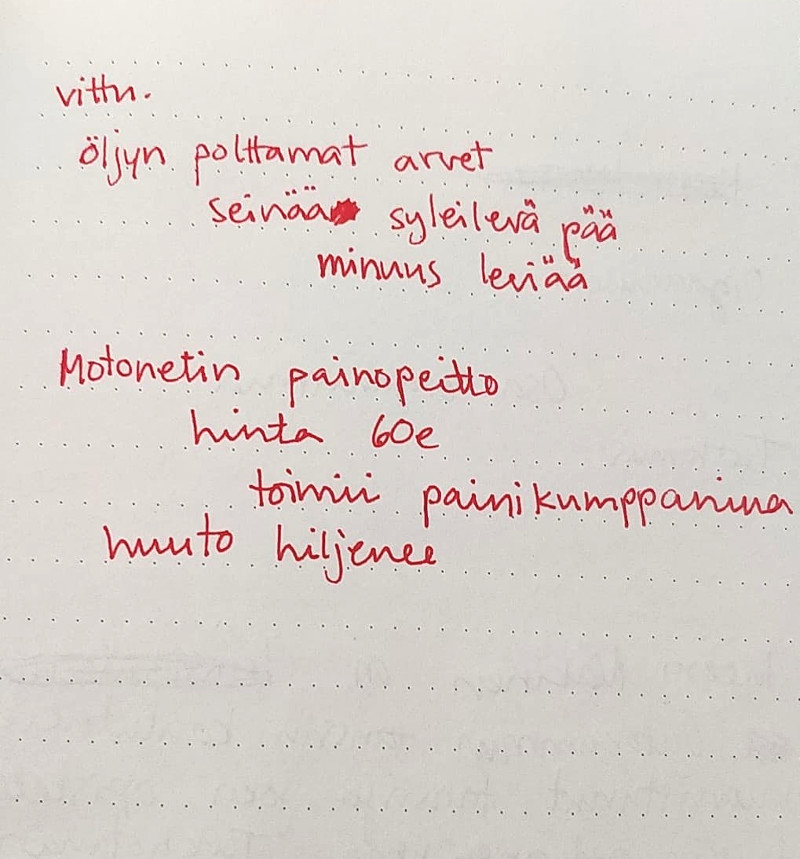 vittu.
öljyn polttamat arvet
seinää syleilevä pää
minuus leviää
Motonetin painopeitto
hinta 60e
toimii painikumppanina
huuto hiljenee